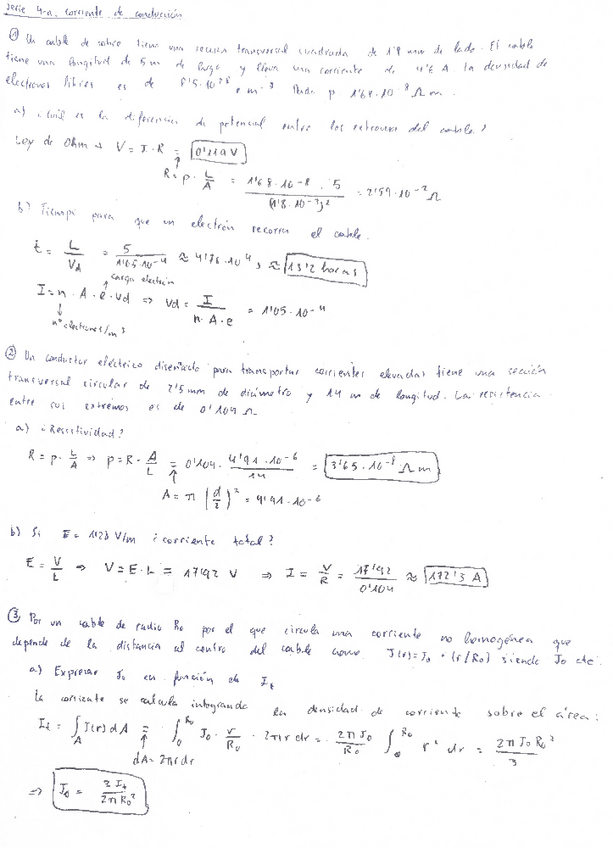 Serie 4-a. corriente de conducción
① Un cable de cobre tiene una sección transversal cuadrada de 1'8 mm de lado. El cable
tiene una longitud de 5 m de largo y lleva una corriente de 4'6 A. La densidad de
electrones libres es de 8'5·10²⁸ e m⁻³ ρ = 1'68·10⁻⁸ Ω m.
a) ¿Cuál es la diferencia de potencial entre los extremos del cable?
Ley de Ohm → V = I · R = 0'119 V
R = ρ · L/A = 1'68·10⁻⁸ · 5 / (1'8·10⁻³)² = 2'59·10⁻² Ω
b) Tiempo para que un electrón recorra el cable.
t = L/Vd = 5/1'05·10⁻⁴ ≈ 4'76·10⁴ s ≈ 13'2 horas
carga electrón
I = n · A · e · Vd ⇒ Vd = I/n·A·e = 1'05·10⁻⁴
nº electrones/m³
② Un conductor eléctrico diseñado para transportar corrientes elevadas tiene una sección
transversal circular de 2'5 mm de diámetro y 14 m de longitud. La resistencia
entre sus extremos es de 0'104 Ω
a) ¿Resistividad?
R = ρ · L/A ⇒ ρ = R · A/L = 0'104 · 4'91·10⁻⁶/14 = 3'65·10⁻⁸ Ω m
A = π (d/2)² = 4'91·10⁻⁶
b) Si E = 1'28 V/m ¿corriente total?
E = V/L ⇒ V = E·L = 17'92 V ⇒ I = V/R = 17'92/0'104 ≈ 172'3 A
③ Por un cable de radio R₀ por el que circula una corriente no homogénea que
depende de la distancia al centro del cable como J(r) = J₀ · (r/R₀) siendo J₀ cte.
a) Expresar J₀ en función de Iₜ
La corriente se calcula integrando la densidad de corriente sobre el área:
Iₜ = ∫_A J(r) dA = ∫₀^R₀ J₀ · r/R₀ · 2πr dr = 2πJ₀/R₀ ∫₀^R₀ r² dr = 2πJ₀R₀²/3
dA = 2πr dr
⇒ J₀ = 3Iₜ/2πR₀²